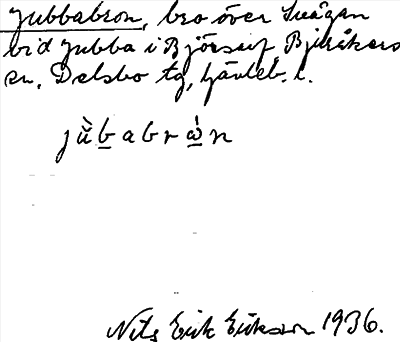 Jubbabron, bro över Svågan
vid Jubba i Björsarf, Bjuråkers
sn, Delsbo tg, Gävleb. l.
jùb̲abrὰ̲n
Nils Erik Eriksson 1936.